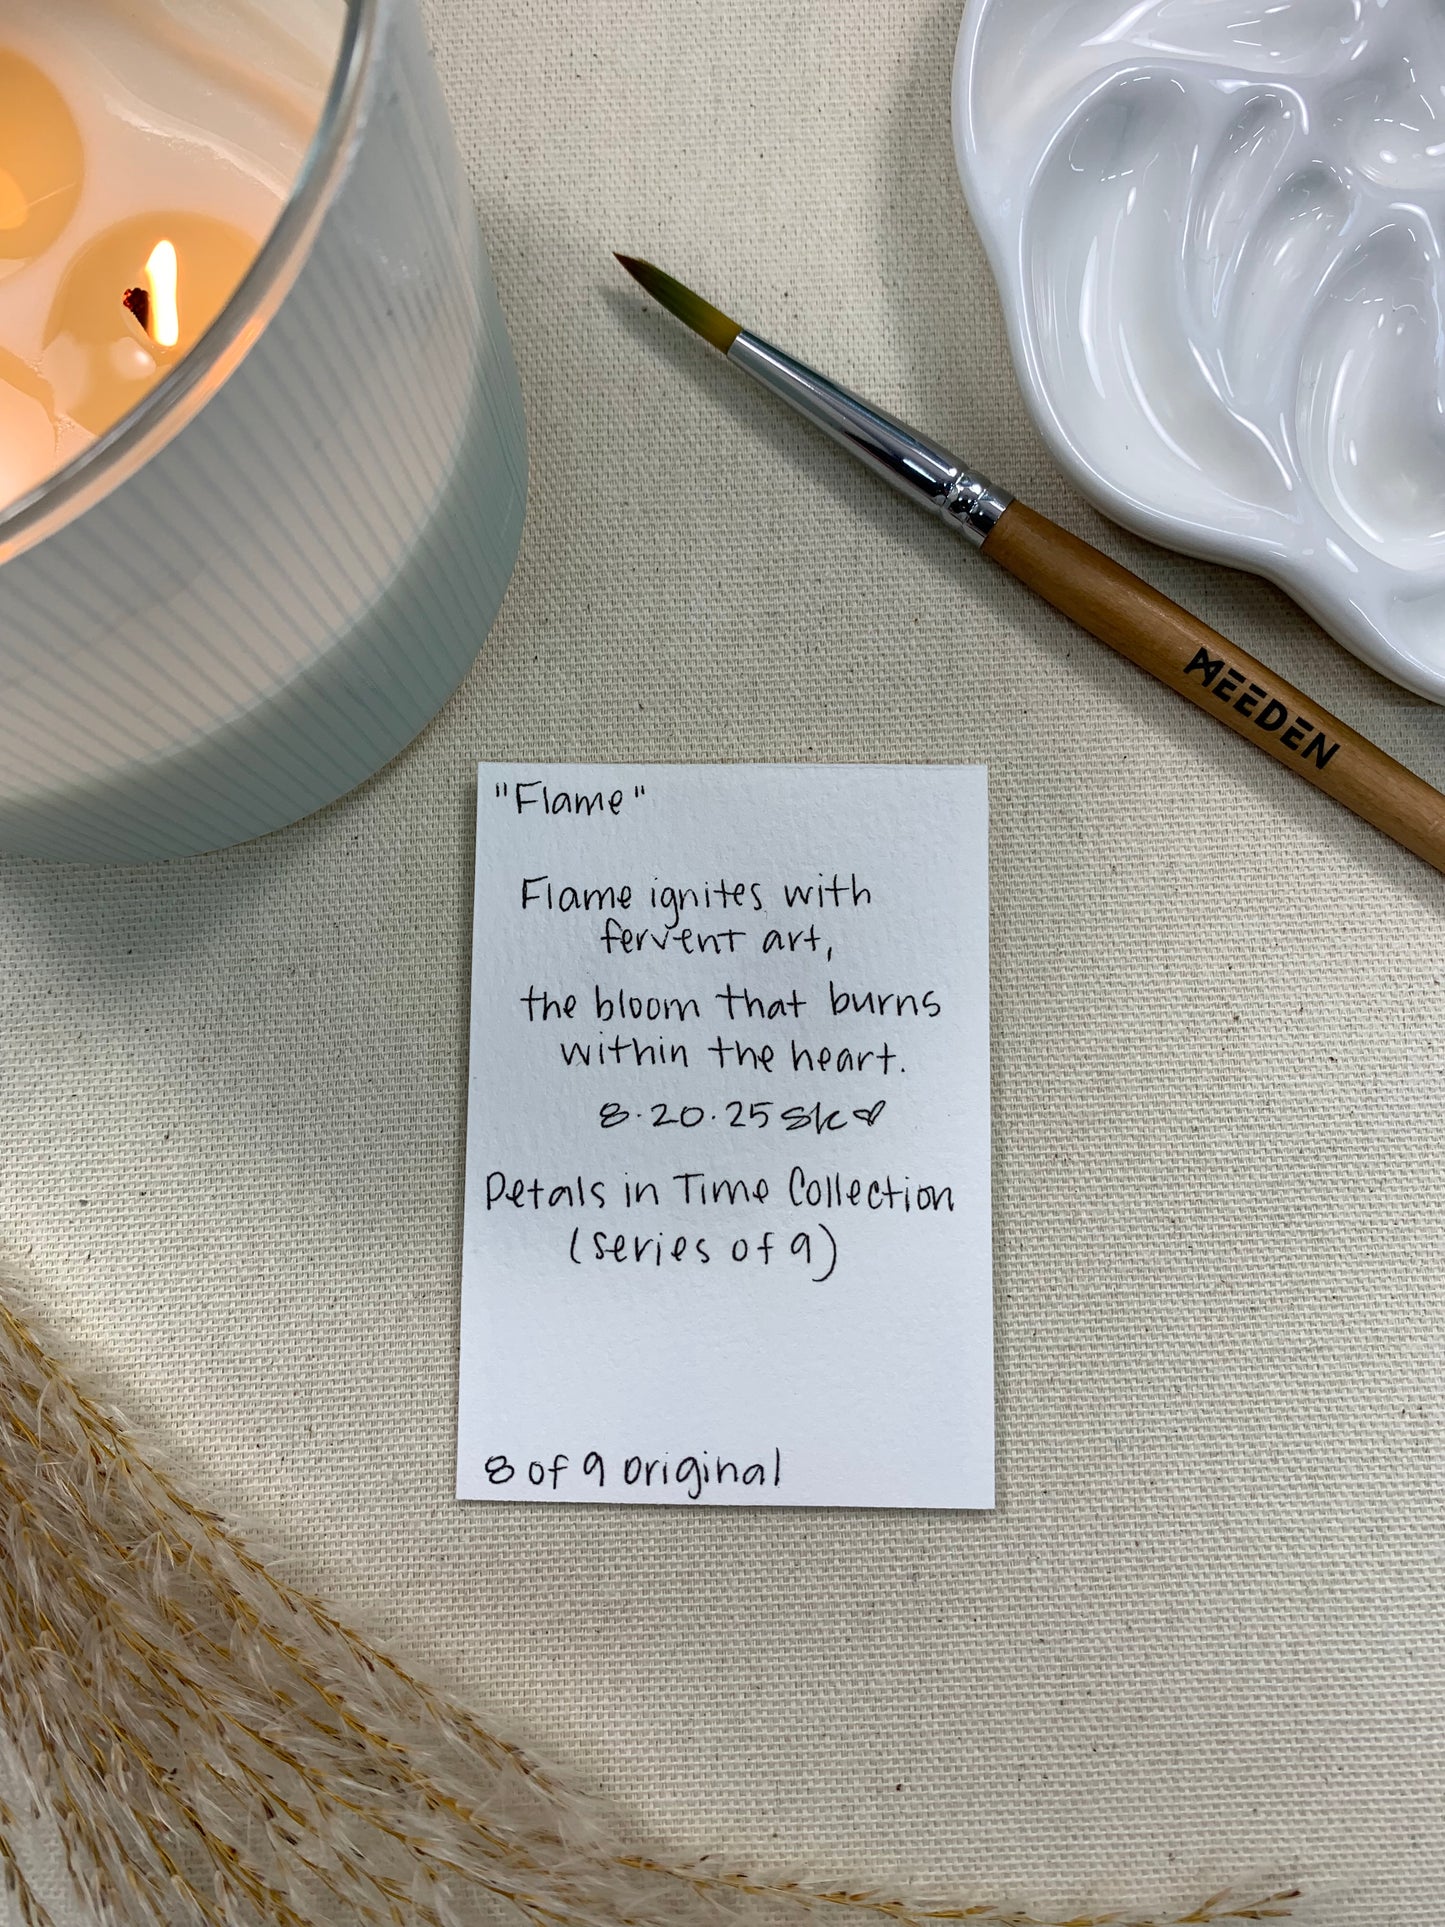 MEEDEN
"Flame"
Flame ignites with
fervent art,
the bloom that burns
within the heart.
8.20.25 SK♡
Petals in Time Collection
(series of 9)
8 of 9 original